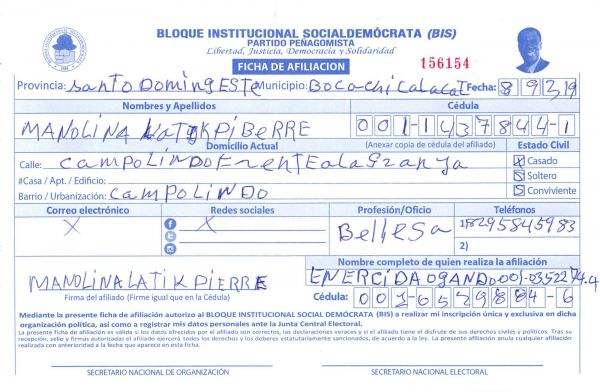 BLOQUE INSTITUCIONAL SOCIALDEMÓCRATA (BIS)
PARTIDO PEÑAGOMISTA
Libertad, Justicia, Democracia y Solidaridad
FICHA DE AFILIACION
156154
Provincia: Santo DomingESte Municipio: Bocachica Fecha: 8 9 2 19
Nombres y Apellidos Cédula
MANOLINA LATIKPiBERRE 001-1437844-1
Domicilio Actual (Anexar copia de cédula del afiliado) Estado Civil
Calle: CAMPOLINDOFrenteala Granja Casado
#Casa / Apt. / Edificio: Soltero
Barrio / Urbanización: CAMPOLINDO Conviviente
Correo electrónico Redes sociales Profesión/Oficio Teléfonos
X X BellESa 1) 8295845983
2)
Nombre completo de quien realiza la afiliación
MANOLINALATIKPIERRE ENERCIDA OGANDO 001-0352274.4
Firma del afiliado (Firme igual que en la Cédula) Cédula: 001-0529884-6
Mediante la presente ficha de afiliación autorizo al BLOQUE INSTITUCIONAL SOCIAL DEMÓCRATA (BIS) a realizar mi inscripción única y exclusiva en dicha
organización política, así como a registrar mis datos personales ante la Junta Central Electoral.
La presente ficha de afiliación es válida si los datos ofrecidos por el afiliado son correctos, las declaraciones veraces y si el afiliado tiene el disfrute de sus derechos civiles y políticos. Tras su
recepción, sello y firmas autorizadas el afiliado ejercerá todos los derechos y los deberes estatutariamente sancionados, de acuerdo a la ley. La presente afiliación anula cualquier afiliación
realizada con anterioridad a la fecha que aparece en esta ficha.
SECRETARIO NACIONAL DE ORGANIZACIÓN SECRETARIO NACIONAL ELECTORAL